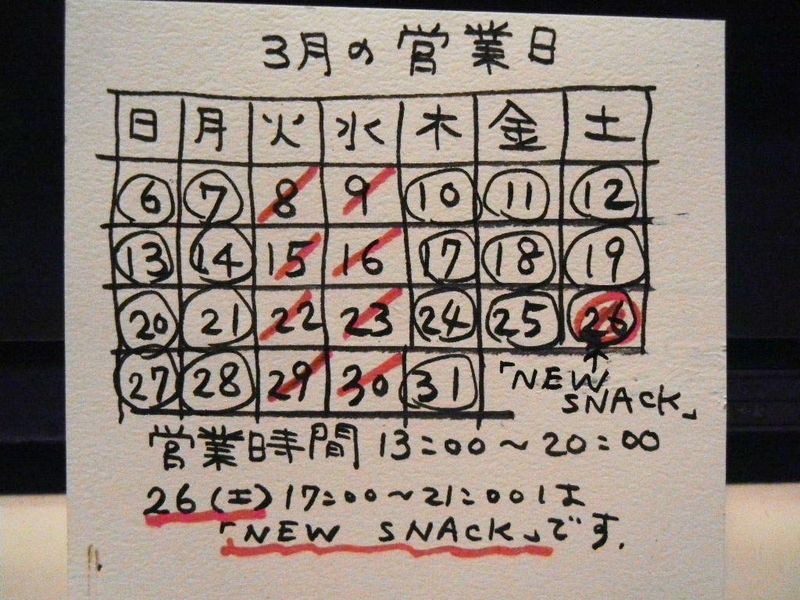 3月の営業日
日 月 火 水 木 金 土
6 7 8 9 10 11 12
13 14 15 16 17 18 19
20 21 22 23 24 25 26
27 28 29 30 31
「NEW
SNACK」
営業時間 13:00〜20:00
26(土)17:00〜21:00は
「NEW SNACK」です.